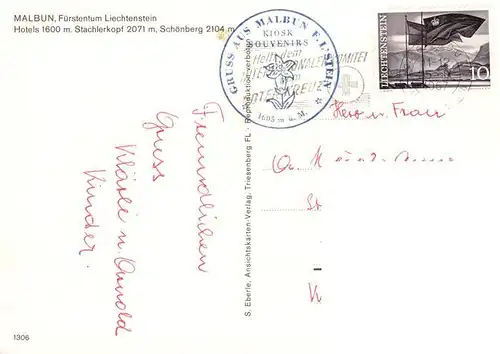 MALBUN, Fürstentum Liechtenstein
Hotels 1600 m. Stachlerkopf 2071 m, Schönberg 2104 m
GRUSS AUS MALBUN F. L'STEIN
KIOSK
SOUVENIRS
1605 m ü. M.
Helft dem
INTERNATIONALEN KOMITEE
vom
ROTEN KREUZ
LIECHTENSTEIN
10
Herr u. Frau
Freundlichen
Gruss
Klärli u. Arnold
Kinder.
S. Eberle, Ansichtskarten-Verlag, Triesenberg FL - Reproduktion verboten
1306